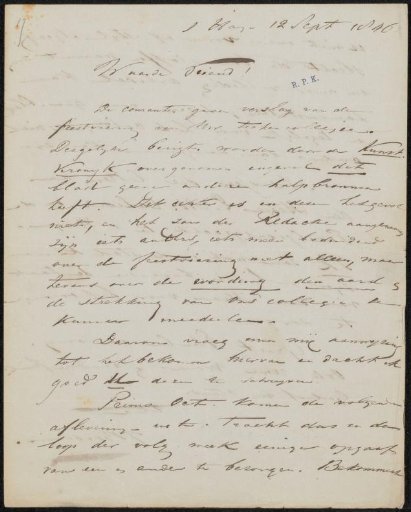 s Hage 12 Sept 1846
Waarde Vriend!
R.P.K.
De couranten geven verslag van de
feestviering van
Dergelyke berigten worden door de Kunst-
Kronyk overgenomen dit
blad geen andere hulpbronnen
heeft. Het eerste is in deze
met, en het zou der Redactie aangenaam
zijn iets anders, iets meer
over de feestviering niet alleen, maar
tevens over de wording, den aard &
de strekking van ons collegie te
kunnen mededeelen.
Daarom vroeg men mij aanwyzing
tot het bekomen hiervan en dacht ik
goed U deze te
Primo Oct komt de volgende
aflevering uit. tracht dus in de
loop der volg. week eenige opgaaf
van een & ander te bezorgen.